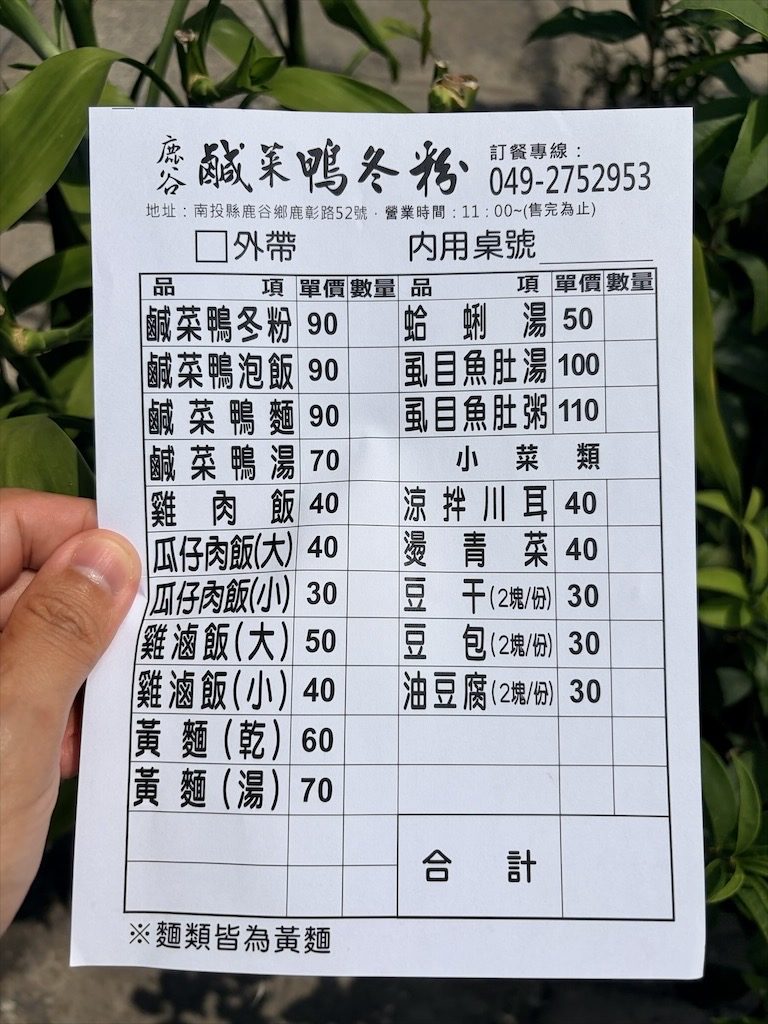 鹿谷 鹹菜鴨冬粉 訂餐專線：
049-2752953
地址：南投縣鹿谷鄉鹿彰路52號．營業時間：11：00~(售完為止)
□外帶 內用桌號
品項 單價 數量 品項 單價 數量
鹹菜鴨冬粉 90 蛤蜊湯 50
鹹菜鴨泡飯 90 虱目魚肚湯 100
鹹菜鴨麵 90 虱目魚肚粥 110
鹹菜鴨湯 70 小菜類
雞肉飯 40 涼拌川耳 40
瓜仔肉飯(大) 40 燙青菜 40
瓜仔肉飯(小) 30 豆干(2塊/份) 30
雞滷飯(大) 50 豆包(2塊/份) 30
雞滷飯(小) 40 油豆腐(2塊/份) 30
黃麵(乾) 60
黃麵(湯) 70
合計
※麵類皆為黃麵